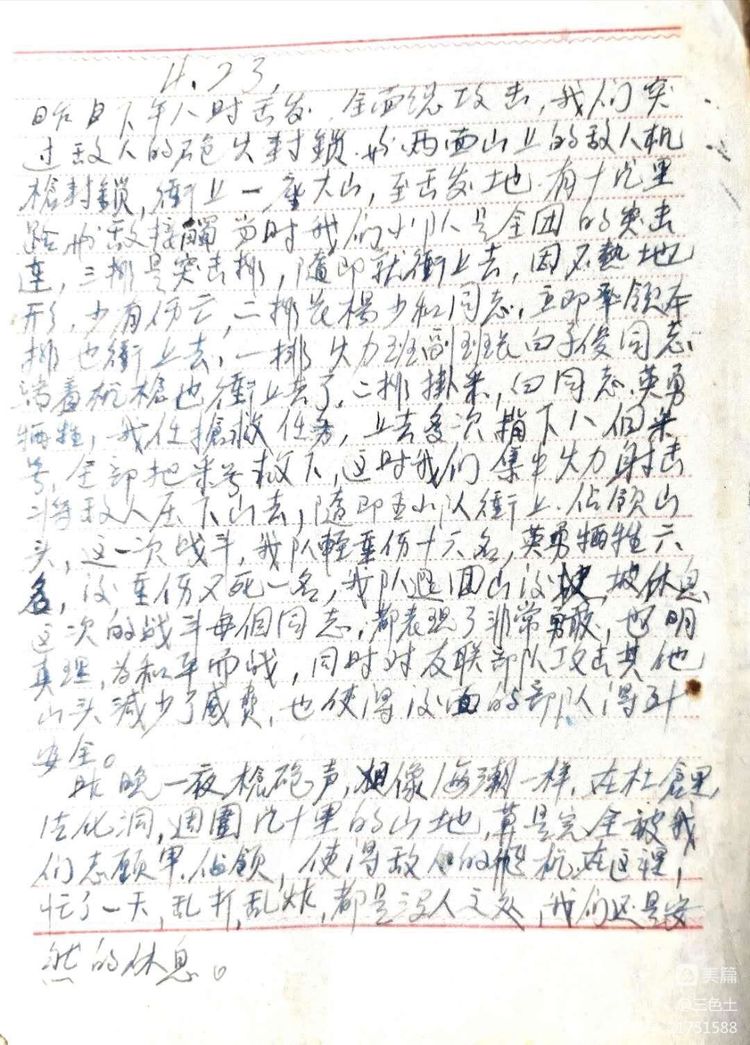 4.23,
昨日下午八时出发,全面总攻击,我们突
过敌人的砲火封鎖.和两面山上的敌人机
槍封鎖,衝上一座大山,至出发地.有十几里
路.和敌接觸.当时我们小队是全团的突击
连,三排是突击排,随即就衝上去,因不熟地
形,少有伤亡,二排長楊少和同志,立即率领本
排也衝上去,一排火力班副班長白子俊同志
端着机槍也衝上去了,二排掛彩,白同志.英勇
牺牲,我任搶救任务,上去多次揹下八個彩
号,全部把彩号救下,这时我们集中火力射击
将敌人压下山去,随即三小队衝上.佔领山
头,这一次战斗,我队輕重伤十六名,英勇牺牲六
名,后重伤又死一名,我队退回山后坡,休息
这次的战斗每個同志,都表现了非常勇敢,也明
真理,为和平而战,同时对友联部队攻击其他
山头减少了威費,也使得后面的部队得到
安全。
昨晚一夜槍砲声,相像海潮一样,在杜倉里
法化洞,週圍几十里的山地,算是完全被我
们志願軍佔领,使得敌人的飛机.在这裡,
忙了一天,乱打,乱炸,都是没人,我们还是安
然的休息。
美篇
@三色土
1751588